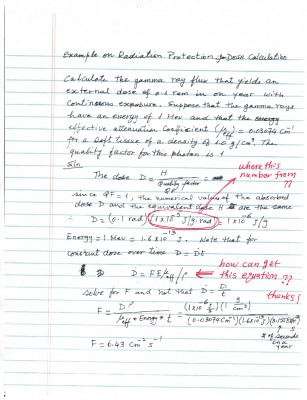 Example on Radiation Protection for Dose Calculation
Calculate the gamma ray flux that yields an
external dose of 0.1 rem in on year with
continuous exposure. Suppose that the gamma rays
have an energy of 1 Mev and that the energy
effective attenuation coefficient (μeff) = 0.03074 cm⁻¹
for a soft tissue of a density of 1.0 g/cm³. The
quality factor for this photon is 1
Sln.
where this
number from
??
The dose D = H / quality factor QF
since QF = 1, the numerical values of the absorbed
dose D and the equivalent dose H are the same
∴ D = (0.1 rad) (1×10⁻⁵ J/g.rad) = 1×10⁻⁶ J/g
Energy = 1 Mev = 1.6×10⁻¹³ J. Note that for
constant dose over time D = Ḋt
how can get
this equation ??
Ḋ = F E μeff / ρ
thanks!
solve for F and not that Ḋ = D/t
F = Dρ / μeff * Energy * t = (1×10⁻⁶ J/g)(1 g/cm³) / (0.03074 cm⁻¹)(1.6×10⁻¹³ J)
# of seconds
in a
year
F = 6.43 cm⁻² s⁻¹